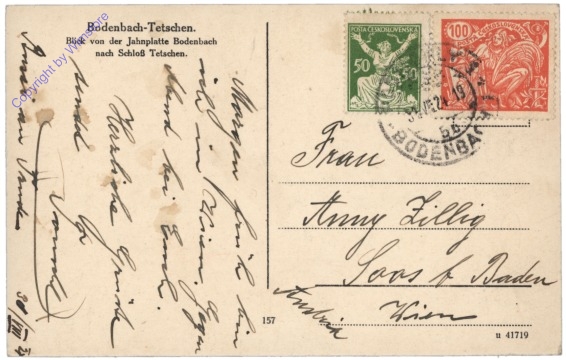 Bodenbach-Tetschen.
Blick von der Jahnplatte Bodenbach
nach Schloß Tetschen.
Copyright by Winstore
POŠTA ČESKOSLOVENSKÁ
50 50
100
BODENBACH
Morgen früh bin
ich in Wien. Gegen
Abend bei Euch.
Herzliche Grüße
30/VIII
Frau
Anny Zillig
Soos b Baden
Wien
Austria
157
u 41719